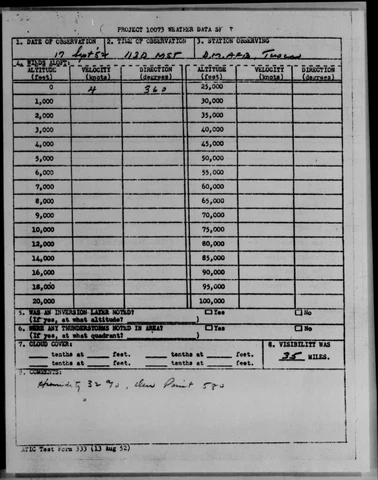 PROJECT 10073 WEATHER DATA SH
1. DATE OF OBSERVATION 2. TIME OF OBSERVATION 3. STATION OBSERVING
17 Sept 52 1130 MST D.M. AFB Tucson
4. WINDS ALOFT:
ALTITUDE (feet) VELOCITY (knots) DIRECTION (degrees) ALTITUDE (feet) VELOCITY (knots) DIRECTION (degrees)
0 4 360 25,000
1,000 30,000
2,000 35,000
3,000 40,000
4,000 45,000
5,000 50,000
6,000 55,000
7,000 60,000
8,000 65,000
9,000 70,000
10,000 75,000
12,000 80,000
14,000 85,000
16,000 90,000
18,000 95,000
20,000 100,000
5. WAS AN INVERSION LAYER NOTED? Yes No
(If yes, at what altitude?)
6. WERE ANY THUNDERSTORMS NOTED IN AREA? Yes No
(If yes, at what quadrant?)
7. CLOUD COVER: 8. VISIBILITY WAS
tenths at feet. tenths at feet. 35 MILES.
tenths at feet. tenths at feet.
9. COMMENTS:
Humidity 32 %, Dew Point 580
ATIC Test Form 333 (13 Aug 52)